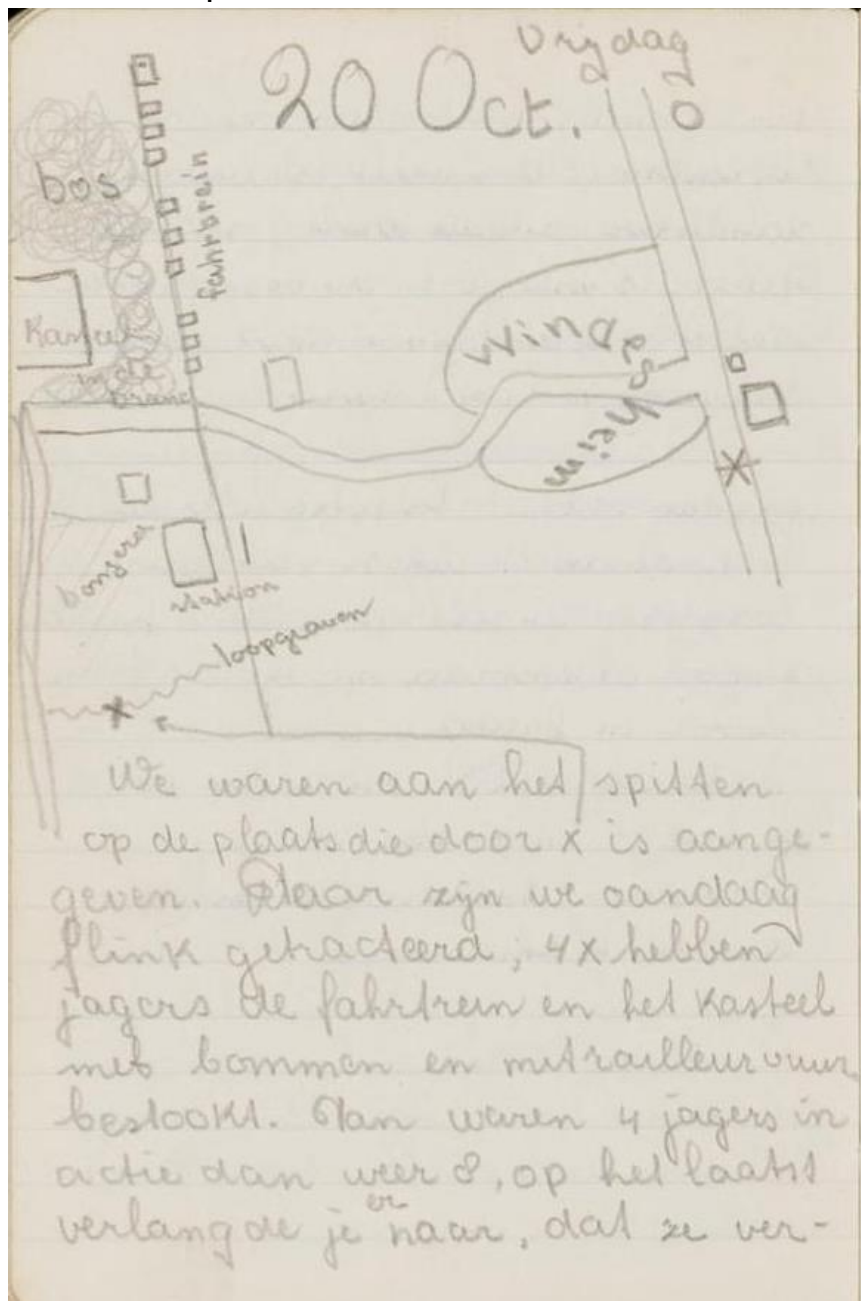 Vrijdag
20 Oct.
bos
fahrtrein
Kasteel
in de
brand
Windes
heim
bongerd
station
loopgraven
We waren aan het spitten
op de plaats die door x is aange-
geven. Daar zijn we vandaag
flink getracteerd, 4x hebben
jagers de fahrtrein en het Kasteel
met bommen en mitrailleurvuur
bestookt. Dan waren 4 jagers in
actie dan weer 8, op het laatst
verlangde je er naar, dat ze ver-